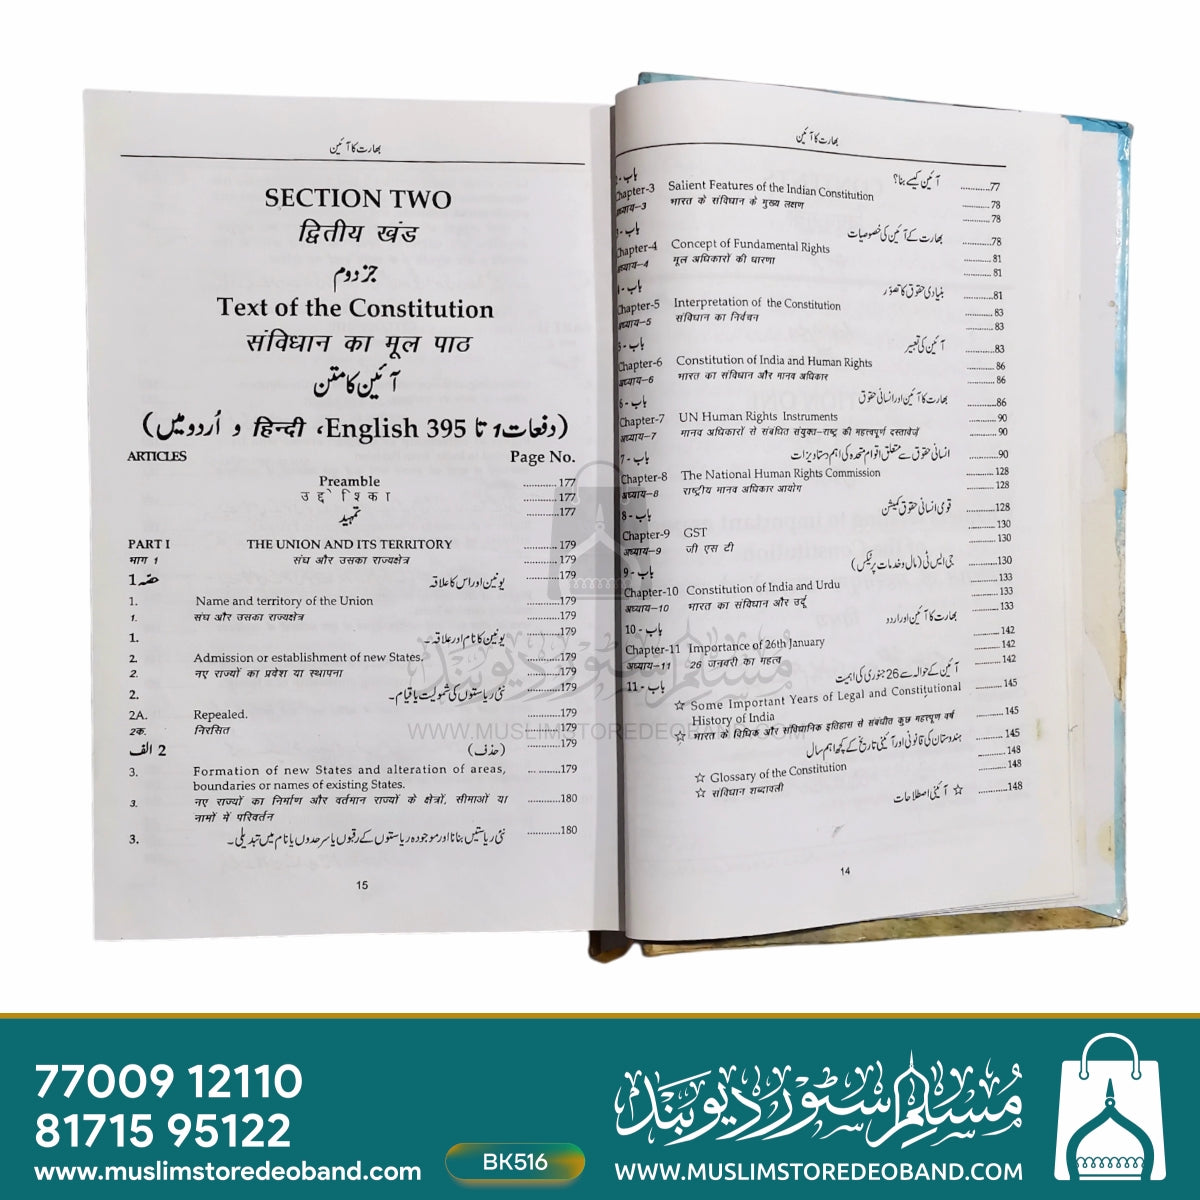 بھارت کا آئین
آئین کیسے بنا؟ ............77
Chapter-3 Salient Features of the Indian Constitution ............78
अध्याय–3 भारत के संविधान के मुख्य लक्षण ............78
باب - 3 بھارت کے آئین کی خصوصیات ............78
Chapter-4 Concept of Fundamental Rights ............81
अध्याय–4 मूल अधिकारों की धारणा ............81
باب - 4 بنیادی حقوق کا تصوّر ............81
Chapter-5 Interpretation of the Constitution ............83
अध्याय–5 संविधान का निर्वचन ............83
باب - 5 آئین کی تعبیر ............83
Chapter-6 Constitution of India and Human Rights ............86
अध्याय–6 भारत का संविधान और मानव अधिकार ............86
باب - 6 بھارت کا آئین اور انسانی حقوق ............86
Chapter-7 UN Human Rights Instruments ............90
अध्याय–7 मानव अधिकारों से संबंधित संयुक्त–राष्ट्र की महत्वपूर्ण दस्तावेज़ें ............90
باب - 7 انسانی حقوق سے متعلق اقوام متحدہ کی اہم دستاویزات ............90
Chapter-8 The National Human Rights Commission ............128
अध्याय–8 राष्ट्रीय मानव अधिकार आयोग ............128
باب - 8 قومی انسانی حقوق کمیشن ............128
Chapter-9 GST ............130
अध्याय–9 जी एस टी ............130
باب - 9 جی ایس ٹی (مال و خدمات پر ٹیکس) ............130
Chapter-10 Constitution of India and Urdu ............133
अध्याय–10 भारत का संविधान और उर्दू ............133
باب - 10 بھارت کا آئین اور اردو ............133
Chapter-11 Importance of 26th January ............142
अध्याय–11 26 जनवरी का महत्व ............142
باب - 11 آئین کے حوالہ سے 26 جنوری کی اہمیت ............142
☆ Some Important Years of Legal and Constitutional
History of India ............145
☆ भारत के विधिक और संविधानिक इतिहास से संबंधीत कुछ महत्वपूर्ण वर्ष ............145
ہندوستان کی قانونی اور آئینی تاریخ کے کچھ اہم سال ............145
☆ Glossary of the Constitution ............148
☆ संविधान शब्दावली ............148
☆ آئینی اصطلاحات ............148
14
بھارت کا آئین
SECTION TWO
द्वितीय खंड
جز دوم
Text of the Constitution
संविधान का मूल पाठ
آئین کا متن
(دفعات 1 تا 395 English، हिन्दी و اُردو میں)
ARTICLES Page No.
Preamble ............177
उद्देशिका ............177
تمہید ............177
PART I THE UNION AND ITS TERRITORY ............179
भाग 1 संघ और उसका राज्यक्षेत्र ............179
حصّہ 1 یونین اور اس کا علاقہ ............179
1. Name and territory of the Union ............179
1. संघ और उसका राज्यक्षेत्र ............179
1. یونین کا نام اور علاقہ۔ ............179
2. Admission or establishment of new States. ............179
2. नए राज्यों का प्रवेश या स्थापना ............179
2. نئی ریاستوں کی شمولیت یا قیام۔ ............179
2A. Repealed. ............179
2क. निरसित ............179
2 الف (حذف) ............179
3. Formation of new States and alteration of areas,
boundaries or names of existing States. ............179
3. नए राज्यों का निर्माण और वर्तमान राज्यों के क्षेत्रों, सीमाओं या
नामों में परिवर्तन ............180
3. نئی ریاستیں بنانا اور موجودہ ریاستوں کے رقبوں یا سرحدوں یا نام میں تبدیلی۔ ............180
15
مسلم سٹور دیوبند
WWW.MUSLIMSTOREDEOBAND.COM
77009 12110
81715 95122
www.muslimstoredeoband.com
BK516
مسلم سٹور دیوبند
WWW.MUSLIMSTOREDEOBAND.COM